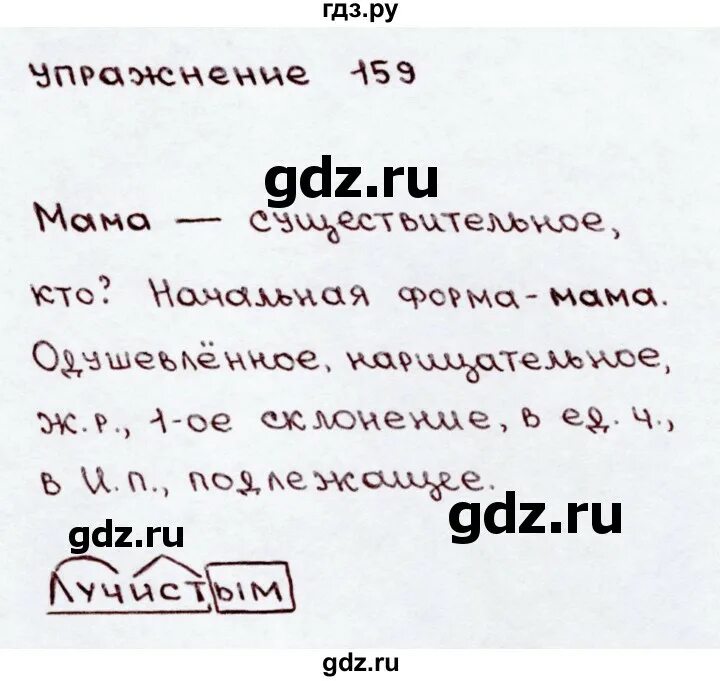 гдз.ру
упражнение 159
gdz.ru
Мама — существительное,
кто? Начальная форма - мама.
Одушевлённое, нарицательное,
ж.р., 1-ое склонение, в ед. ч.,
в И.п., подлежащее.
gdz.ru
gdz.ru
Лучистым
gdz.ru